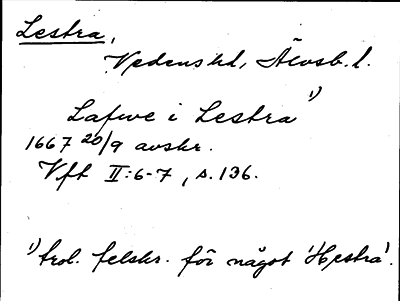 Lestra,
Vedens hd, Älvsb. l.
Lafwe i Lestra 1)
1667 20/9 avskr.
Vft II:6-7, s. 136.
1) trol. felskr. för något 'Hestra'.